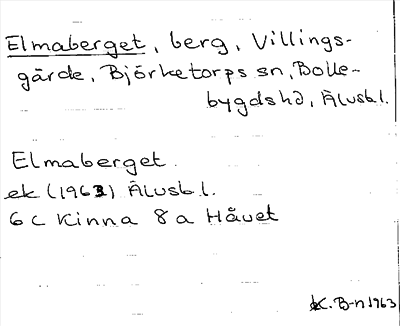 Elmaberget, berg, Villings-
gärde, Björketorps sn, Bolle-
bygdshd, Älvsb.l.
Elmaberget.
ek (1963) Älvsb.l.
6c Kinna 8a Håvet
K. B-n 1963